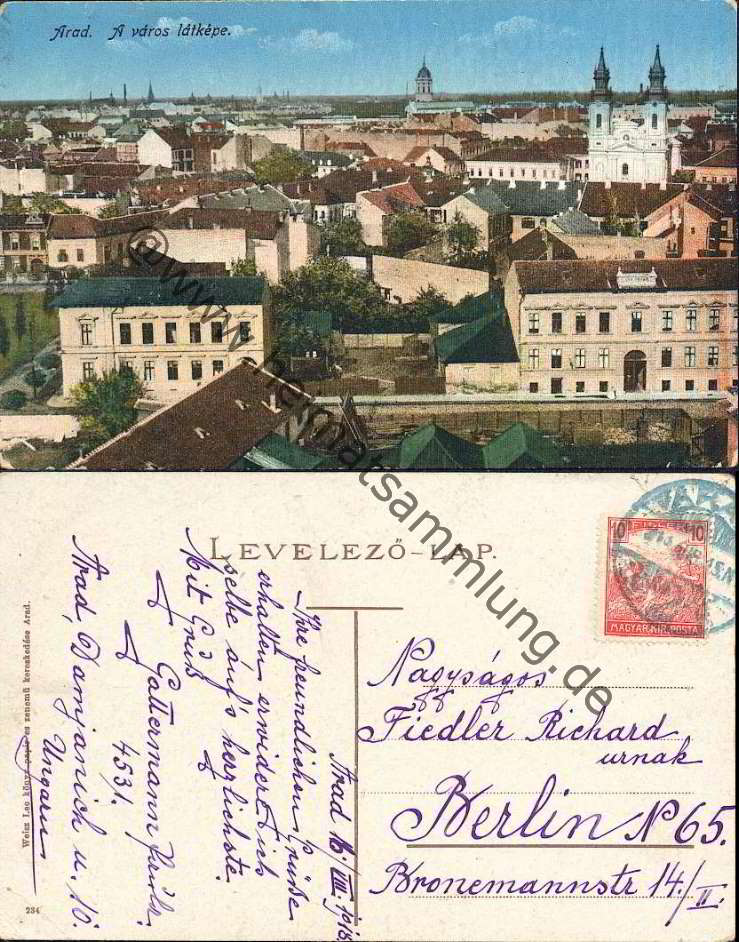 Arad. A város látképe.
@www.heimatsammlung.de
LEVELEZŐ-LAP.
10 10
MAGYAR KIR. POSTA
Arad 16/VIII. 1918.
Ihre freundlichen Grüße
erhalten erwidere ich
selbe auf's herzlichste.
Mit Gruß
Gattermann
4531.
Arad, Damjanich u. 10.
Ungarn
Nagyságos
Fiedler Richard
urnak
Berlin N 65.
Bronemannstr 14./II.
Weisz Leo könyv papir es zenemü kereskedése Arad.
234